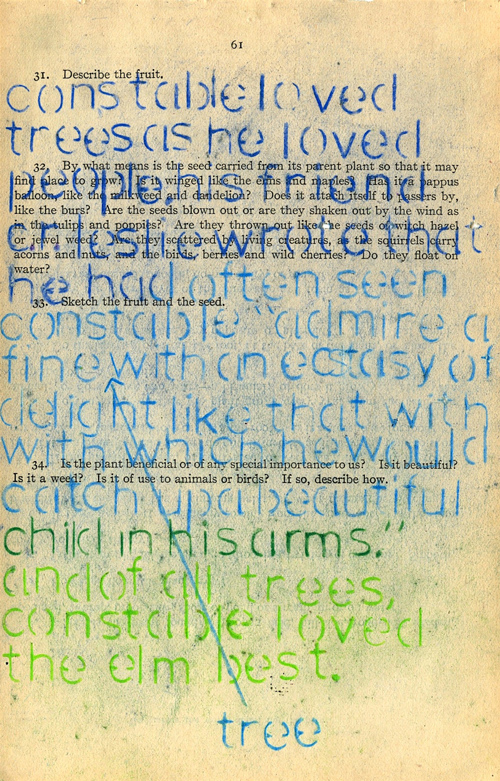 61
31. Describe the fruit.
constable loved
trees as he loved
32. By what means is the seed carried from its parent plant so that it may
find place to grow? Is it winged like the elms and maples? Has it a pappus
people. his friend
balloon, like the milkweed and dandelion? Does it attach itself to passers by,
like the burs? Are the seeds blown out or are they shaken out by the wind as
in the tulip and poppies? Are they thrown out like the seeds of witch hazel
cr leslie wrote that
or jewel weed? Are they scattered by living creatures, as the squirrels carry
acorns and nuts, and the birds, berries and wild cherries? Do they float on
water?
he had often seen
33. Sketch the fruit and the seed.
constable "admire a
fine with an ecstasy of
delight like that with
with which he would
34. Is the plant beneficial or of any special importance to us? Is it beautiful?
Is it a weed? Is it of use to animals or birds? If so, describe how.
catch up a beautiful
child in his arms."
and of all trees,
constable loved
the elm best.
tree